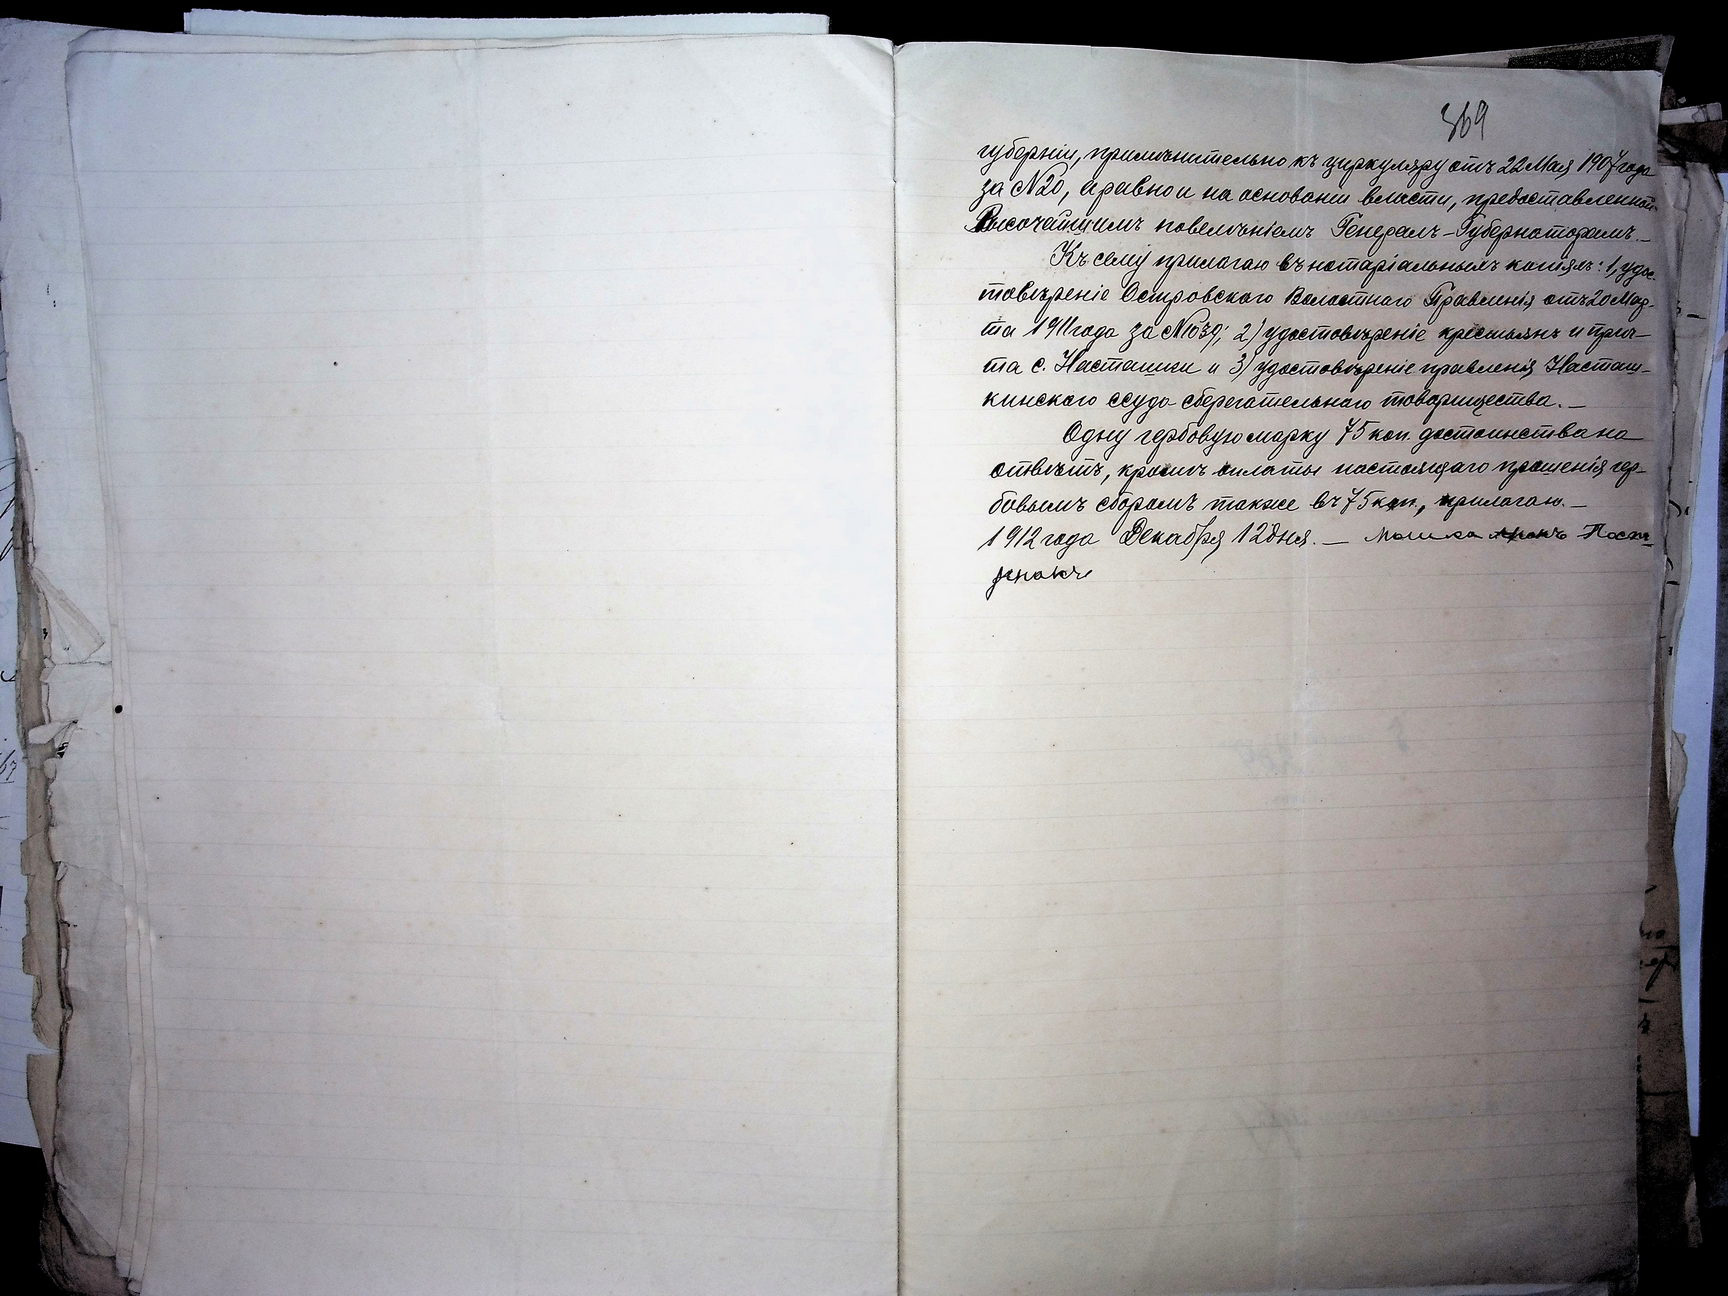 369
губерніи, примѣнительно къ циркуляру отъ 22 Мая 1907 года
за №20, а равно и на основаніи власти, предоставленной
Высочайшимъ повелѣніемъ Генералъ-Губернаторамъ.—
Къ сему прилагаю въ нотаріальныхъ копіяхъ: 1, удос-
товѣреніе Островского Волостного Правленія отъ 20 Мар-
та 1911 года за №1039; 2) удостовѣреніе крестьянъ и прич-
та с. Насташки и 3) удостовѣреніе правленія Насташ-
кинского ссудо сберегательнаго товарищества.—
Одну гербовую марку 75 коп. достоинства на
отвѣтъ, кромѣ оплаты настоящаго прошенія гер-
бовымъ сборомъ также въ 75 коп., прилагаю.—
1912 года Декабря 12 дня.— Мошка